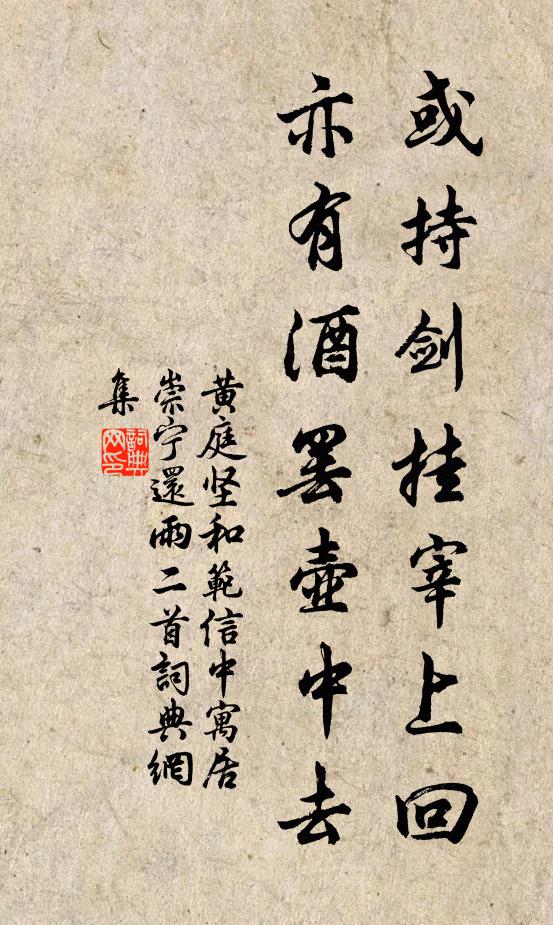 或持剑挂宰上回
亦有酒罢壶中去
黄庭坚和範信中寓居
崇宁還雨二首詞典網
集
詞典
网印